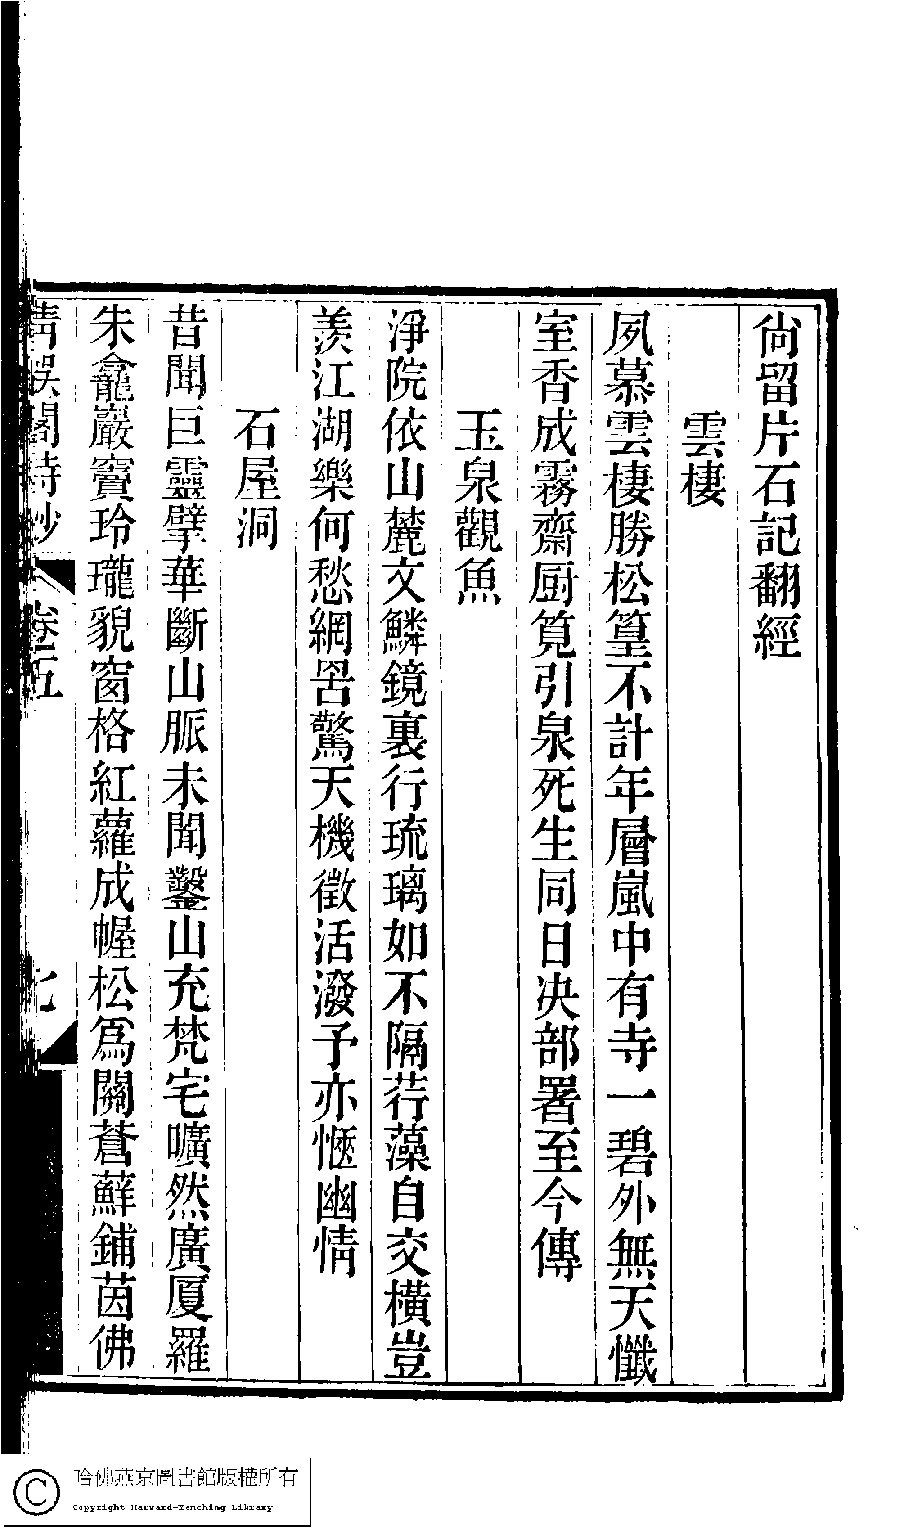 尙留片石記翻經
雲棲
夙慕雲棲勝松篁不計年層嵐中有寺一碧外無天懺
室香成霧齋厨筧引泉死生同日决部署至今傳
玉泉觀魚
淨院依山麓文鱗鏡裏行琉璃如不隔荇藻自交橫豈
羨江湖樂何愁網罟驚天機徵活潑予亦愜幽情
石屋洞
昔聞巨靈擘華斷山脈未聞鑿山充梵宅曠然廣厦羅
朱龕巖竇玲瓏貌窗格紅蘿成幄松爲關蒼蘚鋪茵佛
閣詩鈔 卷五
哈佛燕京圖書館版權所有
Copyright Harvard-Yenching Library